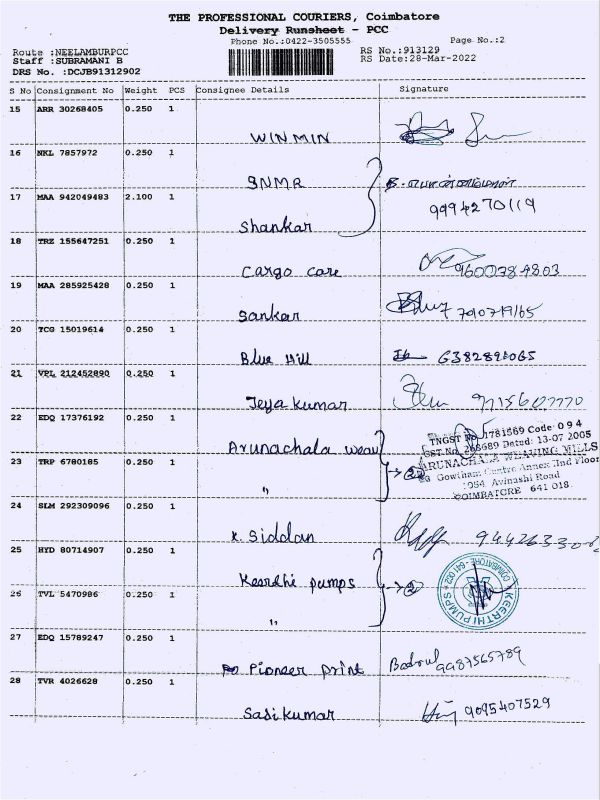 THE PROFESSIONAL COURIERS, Coimbatore
Delivery Runsheet - PCC
Phone No.:0422-3505555 Page No.:2
Route :NEELAMBURPCC RS No.:913129
Staff :SUBRAMANI B RS Date:28-Mar-2022
DRS No. :DCJB91312902
S No Consignment No Weight PCS Consignee Details Signature
15 ARR 30268405 0.250 1
WINMIN
16 NKL 7857972 0.250 1
SNMR
17 MAA 942049483 2.100 1
9994270119
Shankar
18 TRZ 155647251 0.250 1
Cargo care 9600784803
19 MAA 285925428 0.250 1
Sankar
20 TCG 15019614 0.250 1
Blue Hill
21 VPL 212452890 0.250 1
Jeyakumar 9715607770
22 EDQ 17376192 0.250 1
Arunachala weav
TNGST No. 1781569 Code 094
CST No. Dated: 13-07 2005
23 TRP 6780185 0.250 1
ARUNACHALA WEAVING MILLS
Gowtham Centre Annex IInd Floor
"
1054, Avinashi Road
COIMBATORE 641 018.
24 SLM 292309096 0.250 1
K. Siddan
25 HYD 80714907 0.250 1
Keerdhi pumps 2
KEERTHI PUMPS COIMBATORE - 641 002
26 TVL 5470986 0.250 1
"
27 EDQ 15789247 0.250 1
Pioneer print 9487565789
28 TVR 4026628 0.250 1
Sasikumar 9095407529